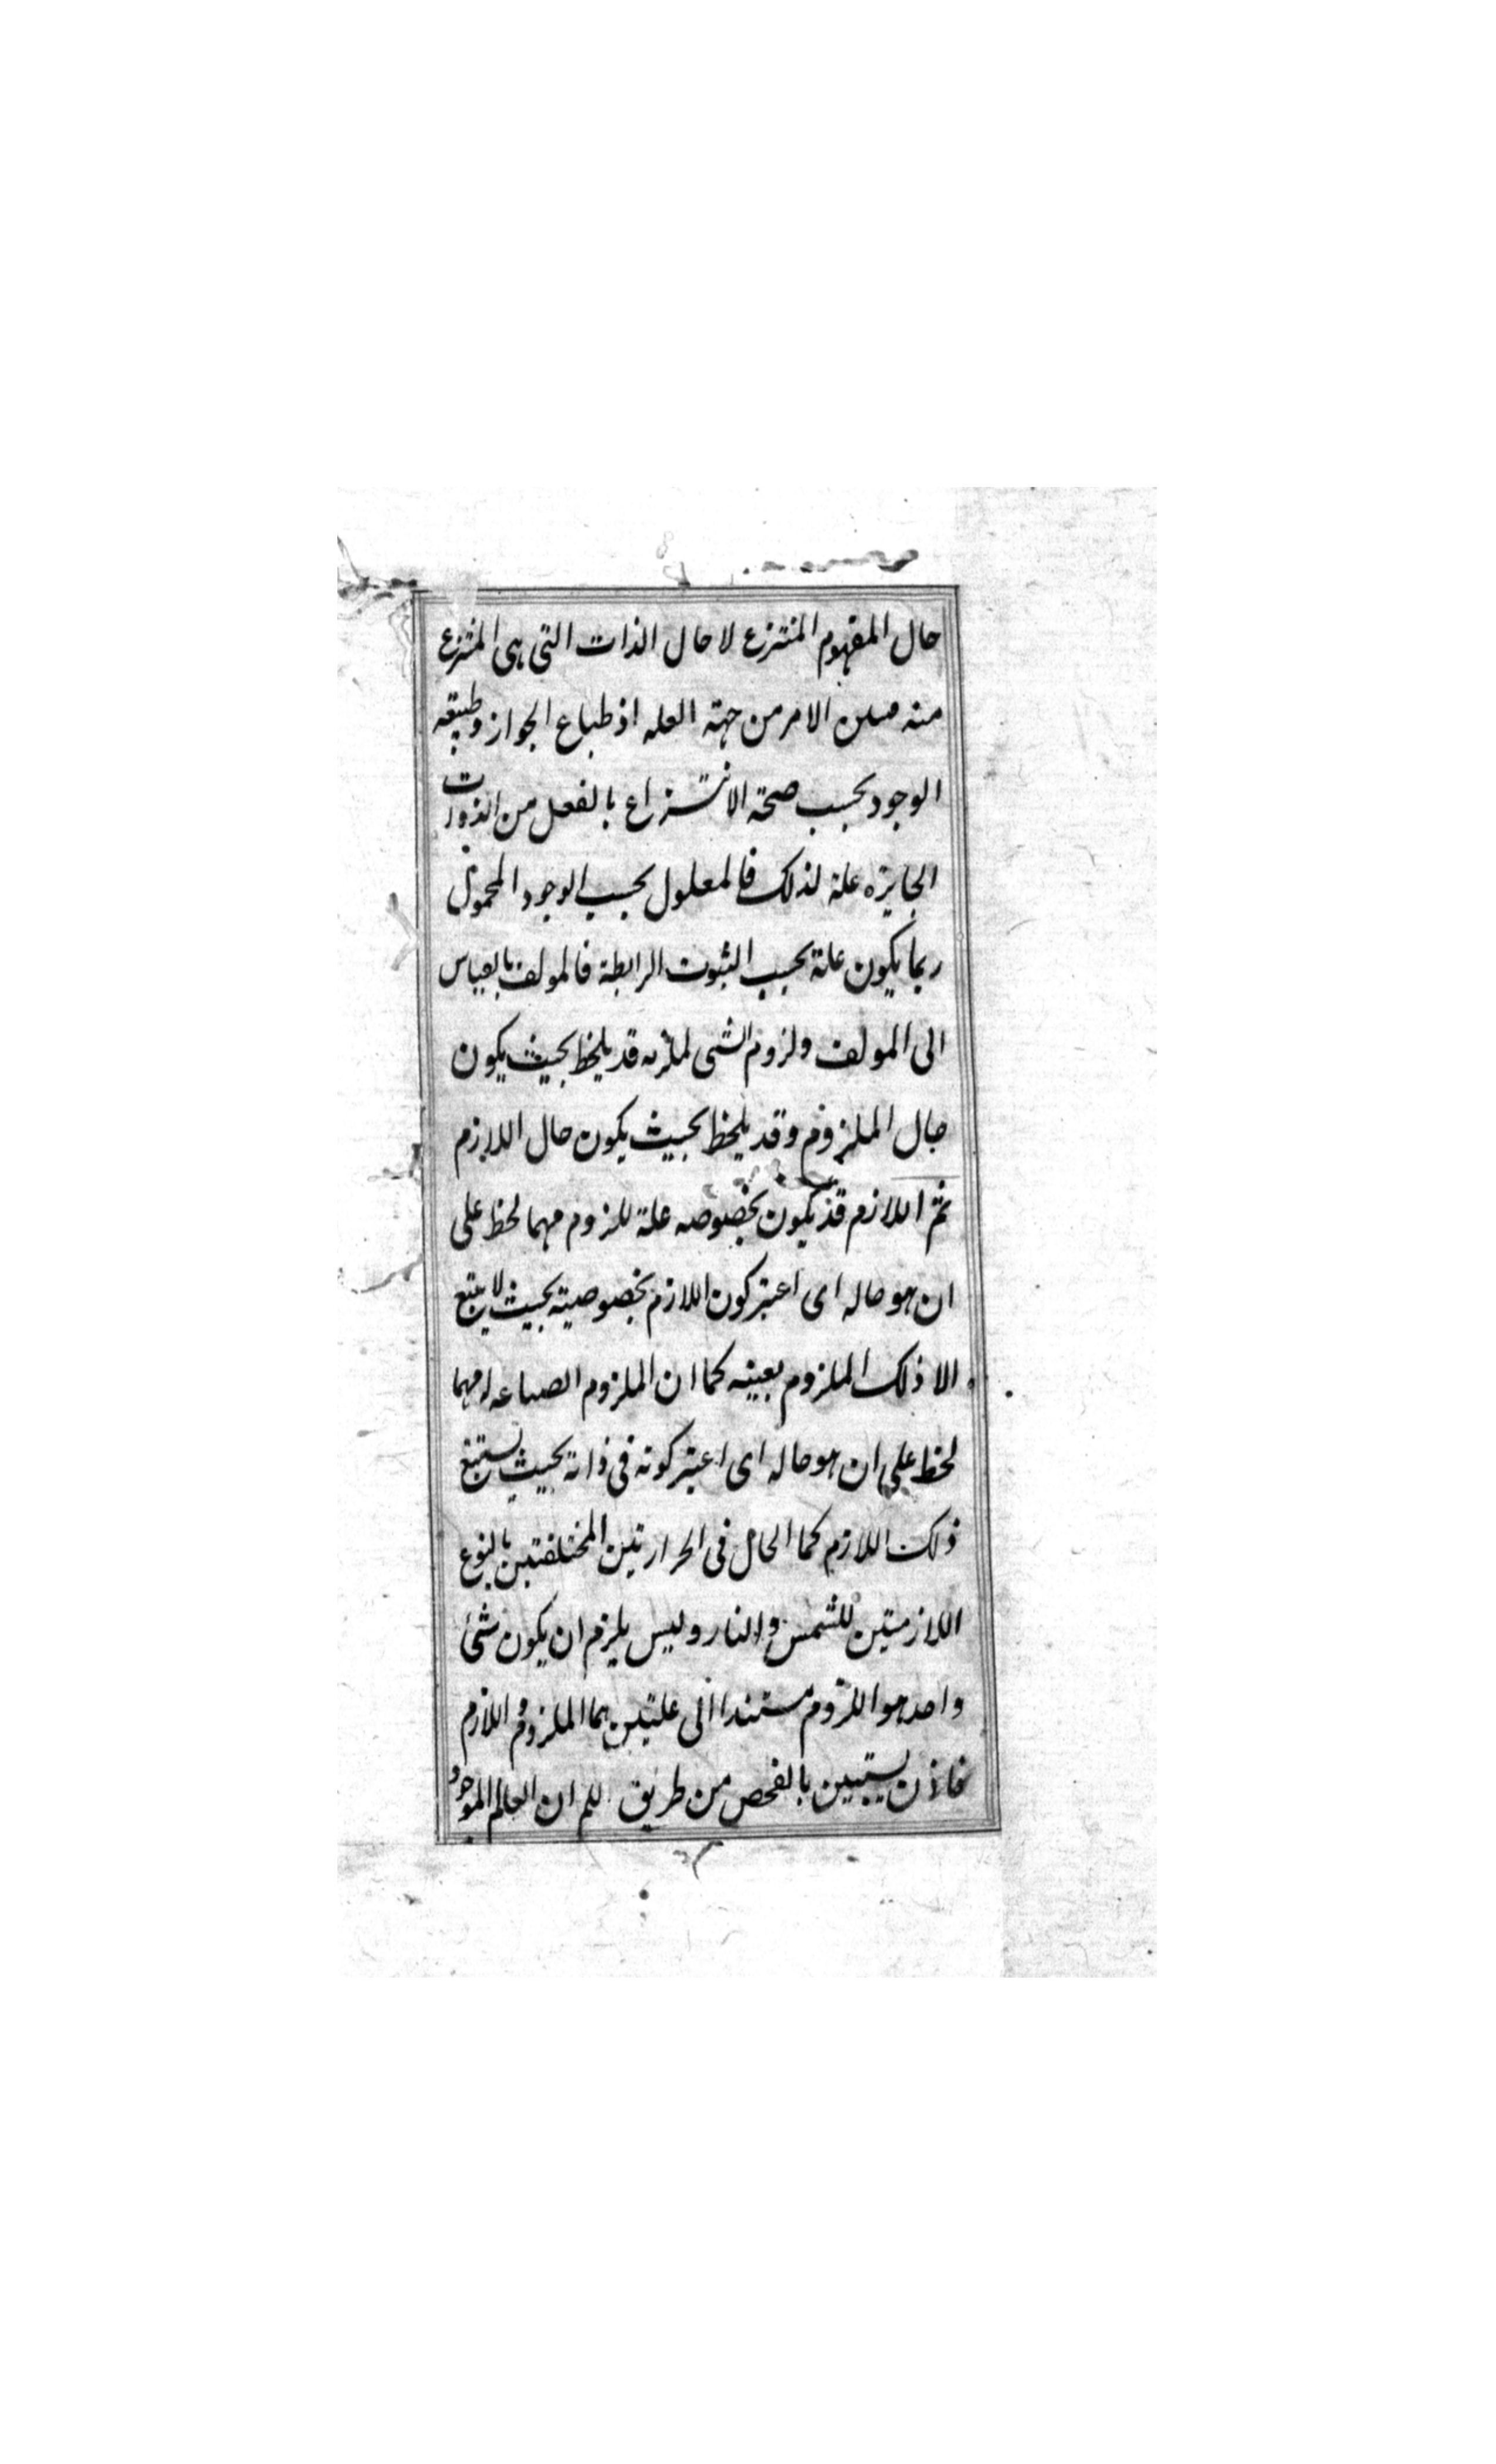 حال المفهوم المنتزع لا حال الذات التى هى المنتزع
منه الامر من جهة العله اذ طباع الجواز وطبيعه
الوجود بحسب صحة الانتزاع بالفعل من الذوات
الجايزه علة لذلك فالمعلول بحسب الوجود المحمول
ربما يكون علة بحسب الثبوت الرابطة فالمولف بالقياس
الى المولف ولزوم الشى قد يلحظ بحيث يكون
حال الملزوم وقد يلحظ بحيث يكون حال اللازم
ثم اللازم قد يكون بخصوصه علة للزوم مهما لحظ على
ان هو حاله اى اعتبر كون اللازم بخصوصيته بحيث لا يتبع
الا ذلك الملزوم بعينه كما ان الملزوم مهما
لحظ على ان هو حاله اى اعتبر كونه فى ذاته بحيث يستتبع
ذلك اللازم كما الحال فى الحرارتين المختلفتين بالنوع
اللازمتين للشمس والنار وليس يلزم ان يكون شئ
واحد هو اللزوم مستندا الى علتين هما الملزوم و اللازم
فاذن يستبين بالفحص من طريق للم ان العالم الموجود